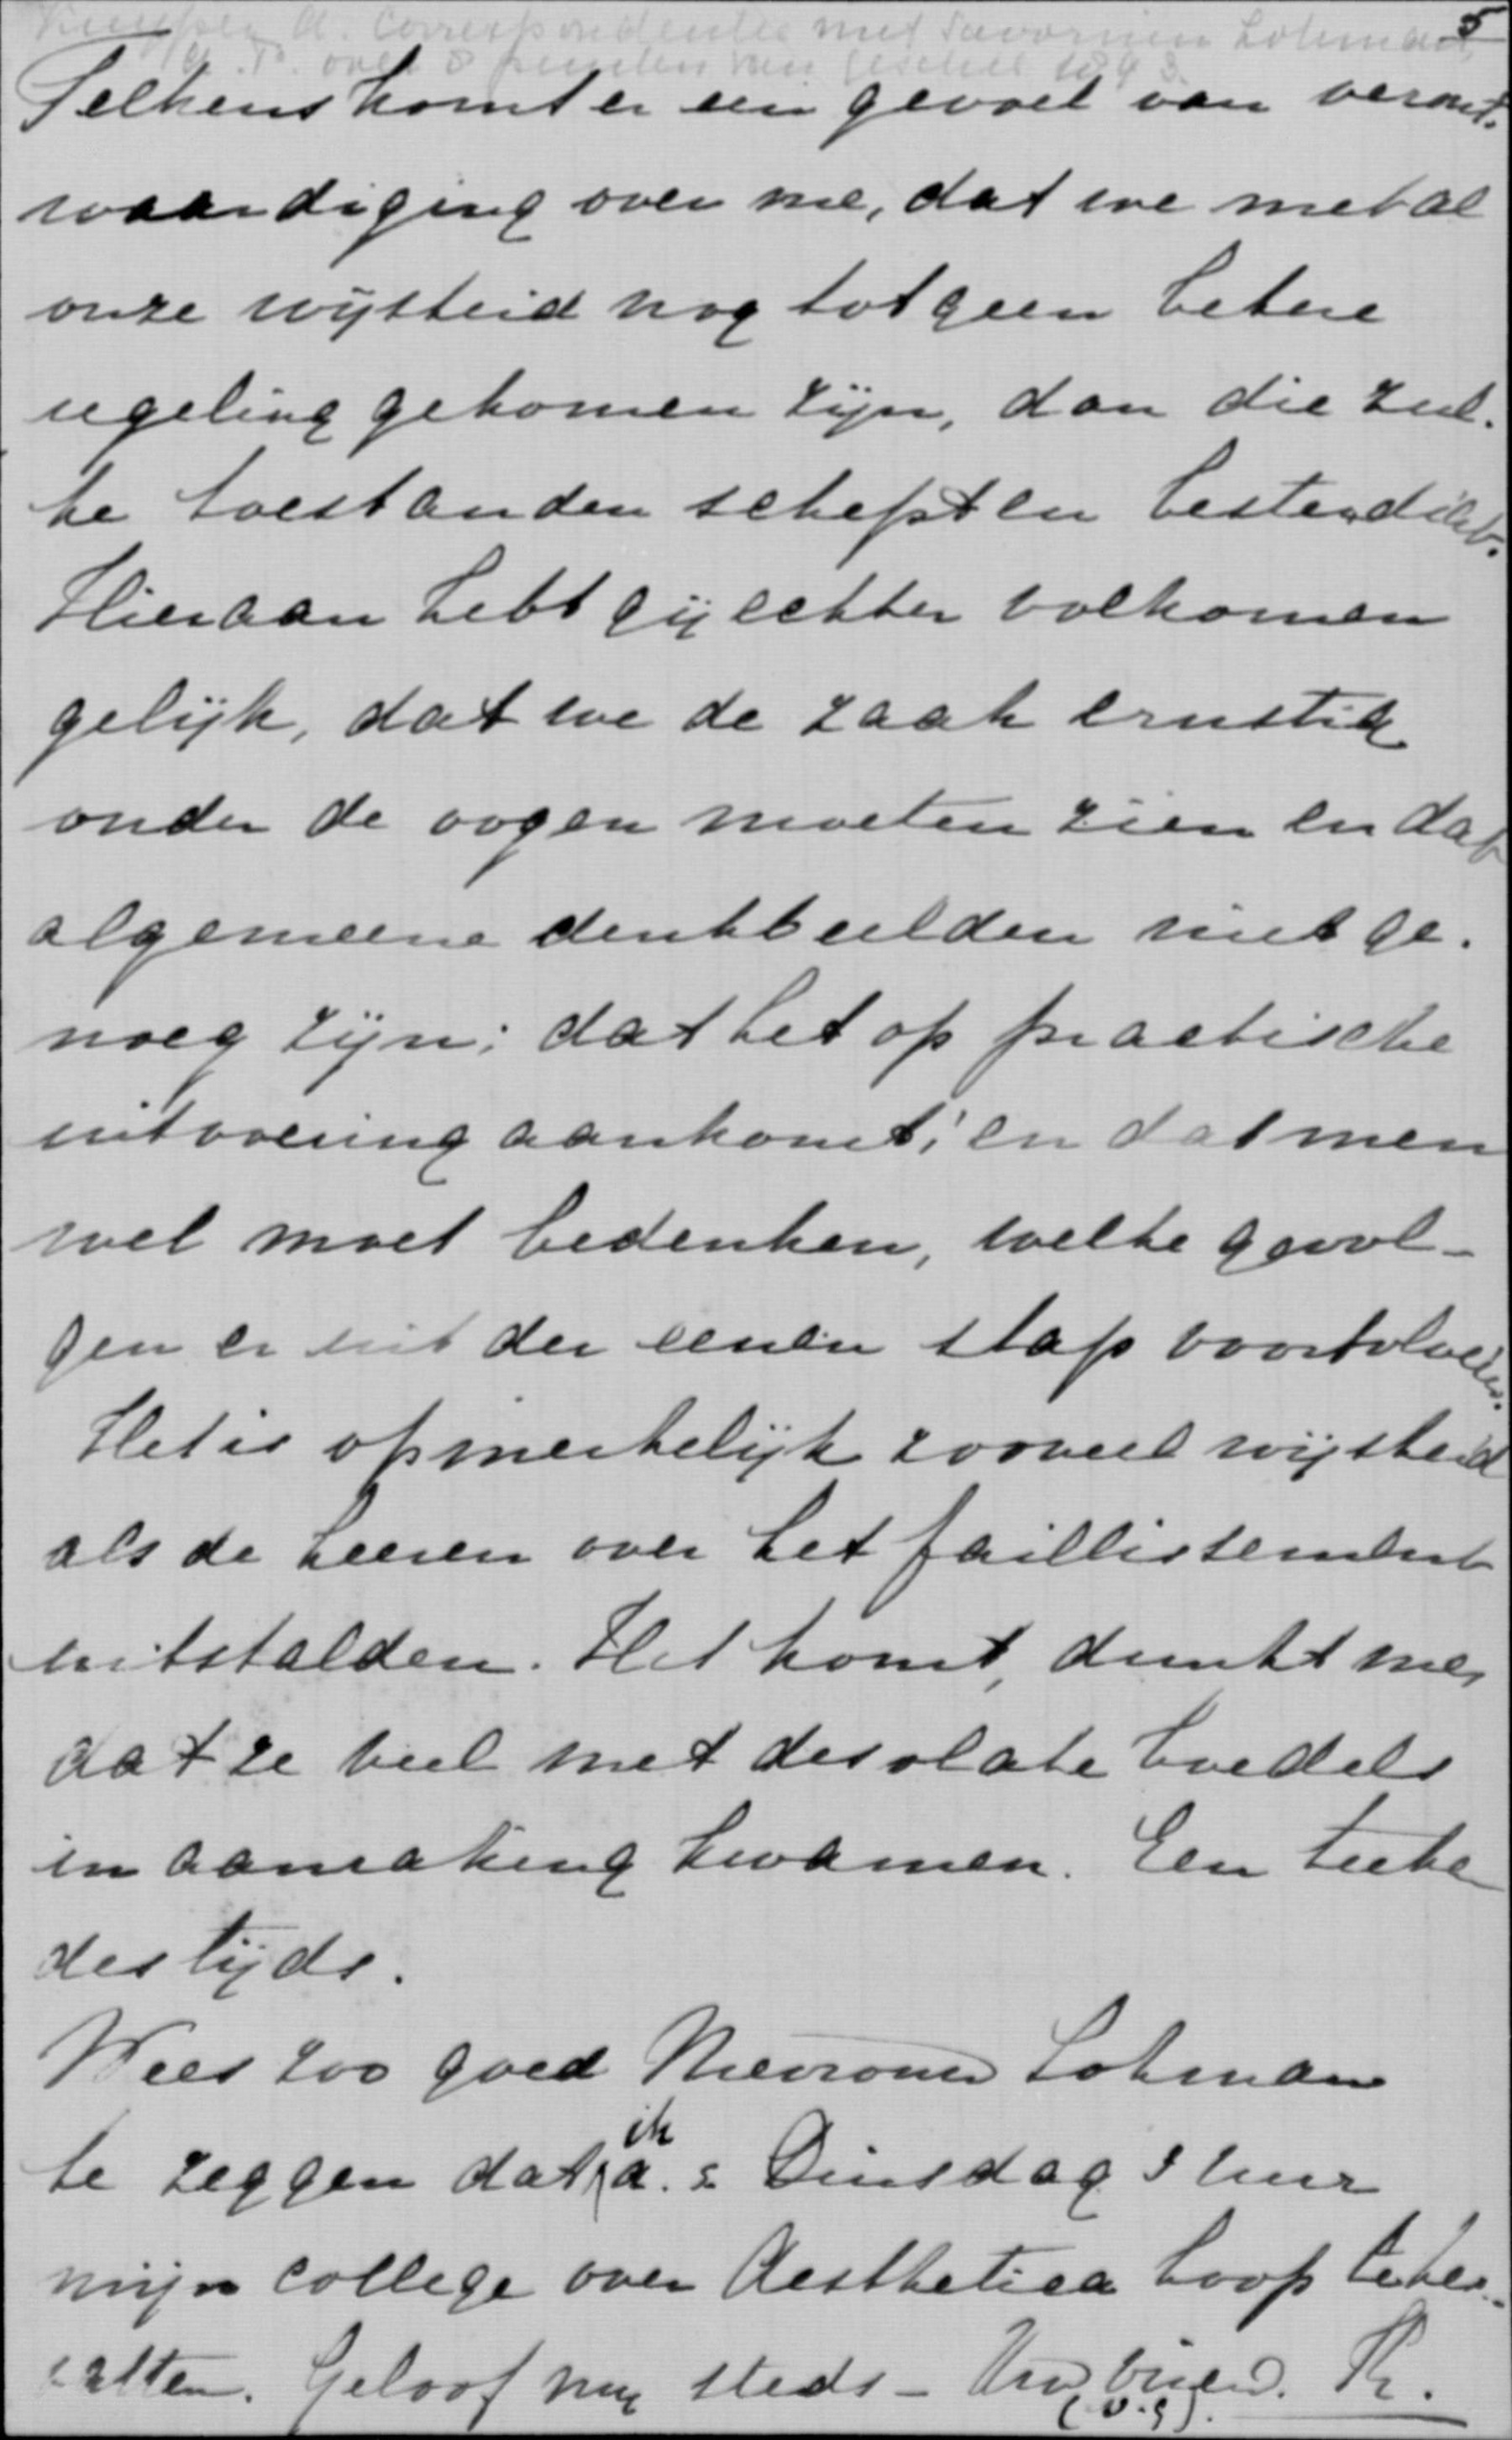 5
Kuyper A. Correspondentie met Savornin Lohman
A. F. over 8 punten van geschil 1893.
Telkens komt er een gevoel van veront.
waardiging over me, dat we met al
onze wijsheid nog tot geen betere
regeling gekomen zijn, dan die zul.
ke toestanden schept en bestendigt.
Hieraan hebt gij echter volkomen
gelijk, dat we de zaak ernstig
onder de oogen moeten zien en dat
algemeene denkbeelden niet ge.
noeg zijn; dat het op practische
uitvoering aankomt; en dat men
wel moet bedenken, welke gevol-
gen er uit der eenen stap voortvloeien.
Het is opmerkelijk zooveel wijsheid
als de heeren over het faillissement
uitstalden. Het komt, dunkt me,
dat ze veel met desolate boedels
in aanraking kwamen. Een teeken
des tijds.
Wees zoo goed Mevrouw Lohman
te zeggen dat ik a. s. Dinsdag 3 uur
mijn college over Aesthetica hoop te her-
vatten. Geloof mij steds - Uw vriend. K.
(v.g).